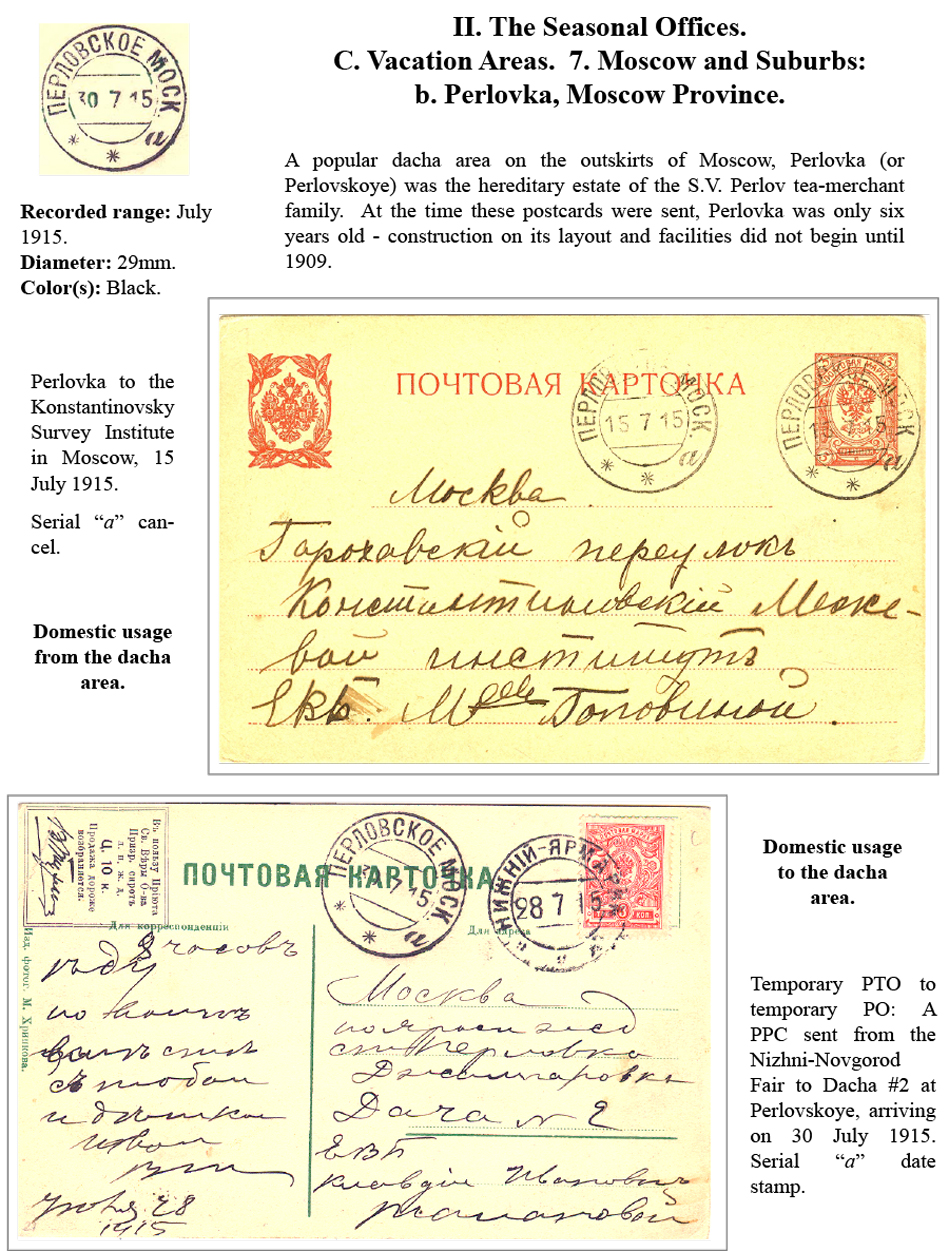 ПЕРЛОВСКОЕ МОСК
30 7 15
а
II. The Seasonal Offices.
C. Vacation Areas. 7. Moscow and Suburbs:
b. Perlovka, Moscow Province.
A popular dacha area on the outskirts of Moscow, Perlovka (or
Perlovskoye) was the hereditary estate of the S.V. Perlov tea-merchant
family. At the time these postcards were sent, Perlovka was only six
years old - construction on its layout and facilities did not begin until
1909.
Recorded range: July
1915.
Diameter: 29mm.
Color(s): Black.
Perlovka to the
Konstantinovsky
Survey Institute
in Moscow, 15
July 1915.
Serial “a” can-
cel.
Domestic usage
from the dacha
area.
ПОЧТОВАЯ КАРТОЧКА
ПЕРЛОВ МОСК.
15 7 15
а
ПЕРЛОВСКОЕ МОСК
15 7 15
а
Москва
Гороховскій переулокъ
Константиновскій Меже-
вой институтъ
Екб. Mlle Поповиной.
Въ пользу Пріюта
Св. Вѣры О-ва
Призр. сиротъ
л. п. ж. д.
Ц. 10 к.
Продажа дороже
возбраняется.
ПОЧТОВАЯ КАРТОЧКА
ПЕРЛОВСКОЕ МОСК
7 15
а
НИЖНІЙ-ЯРМАР
28 7 15
Для корреспонденціи
Для адреса
Изд. фотог. М. Хрипкова.
8 часовъ
ѣду
съ тобой
28
1915
Москва
ст Перловка
Дача № 2
ЕВБ
Клавдіи Ивановнѣ
Domestic usage
to the dacha
area.
Temporary PTO to
temporary PO: A
PPC sent from the
Nizhni-Novgorod
Fair to Dacha #2 at
Perlovskoye, arriving
on 30 July 1915.
Serial “a” date
stamp.